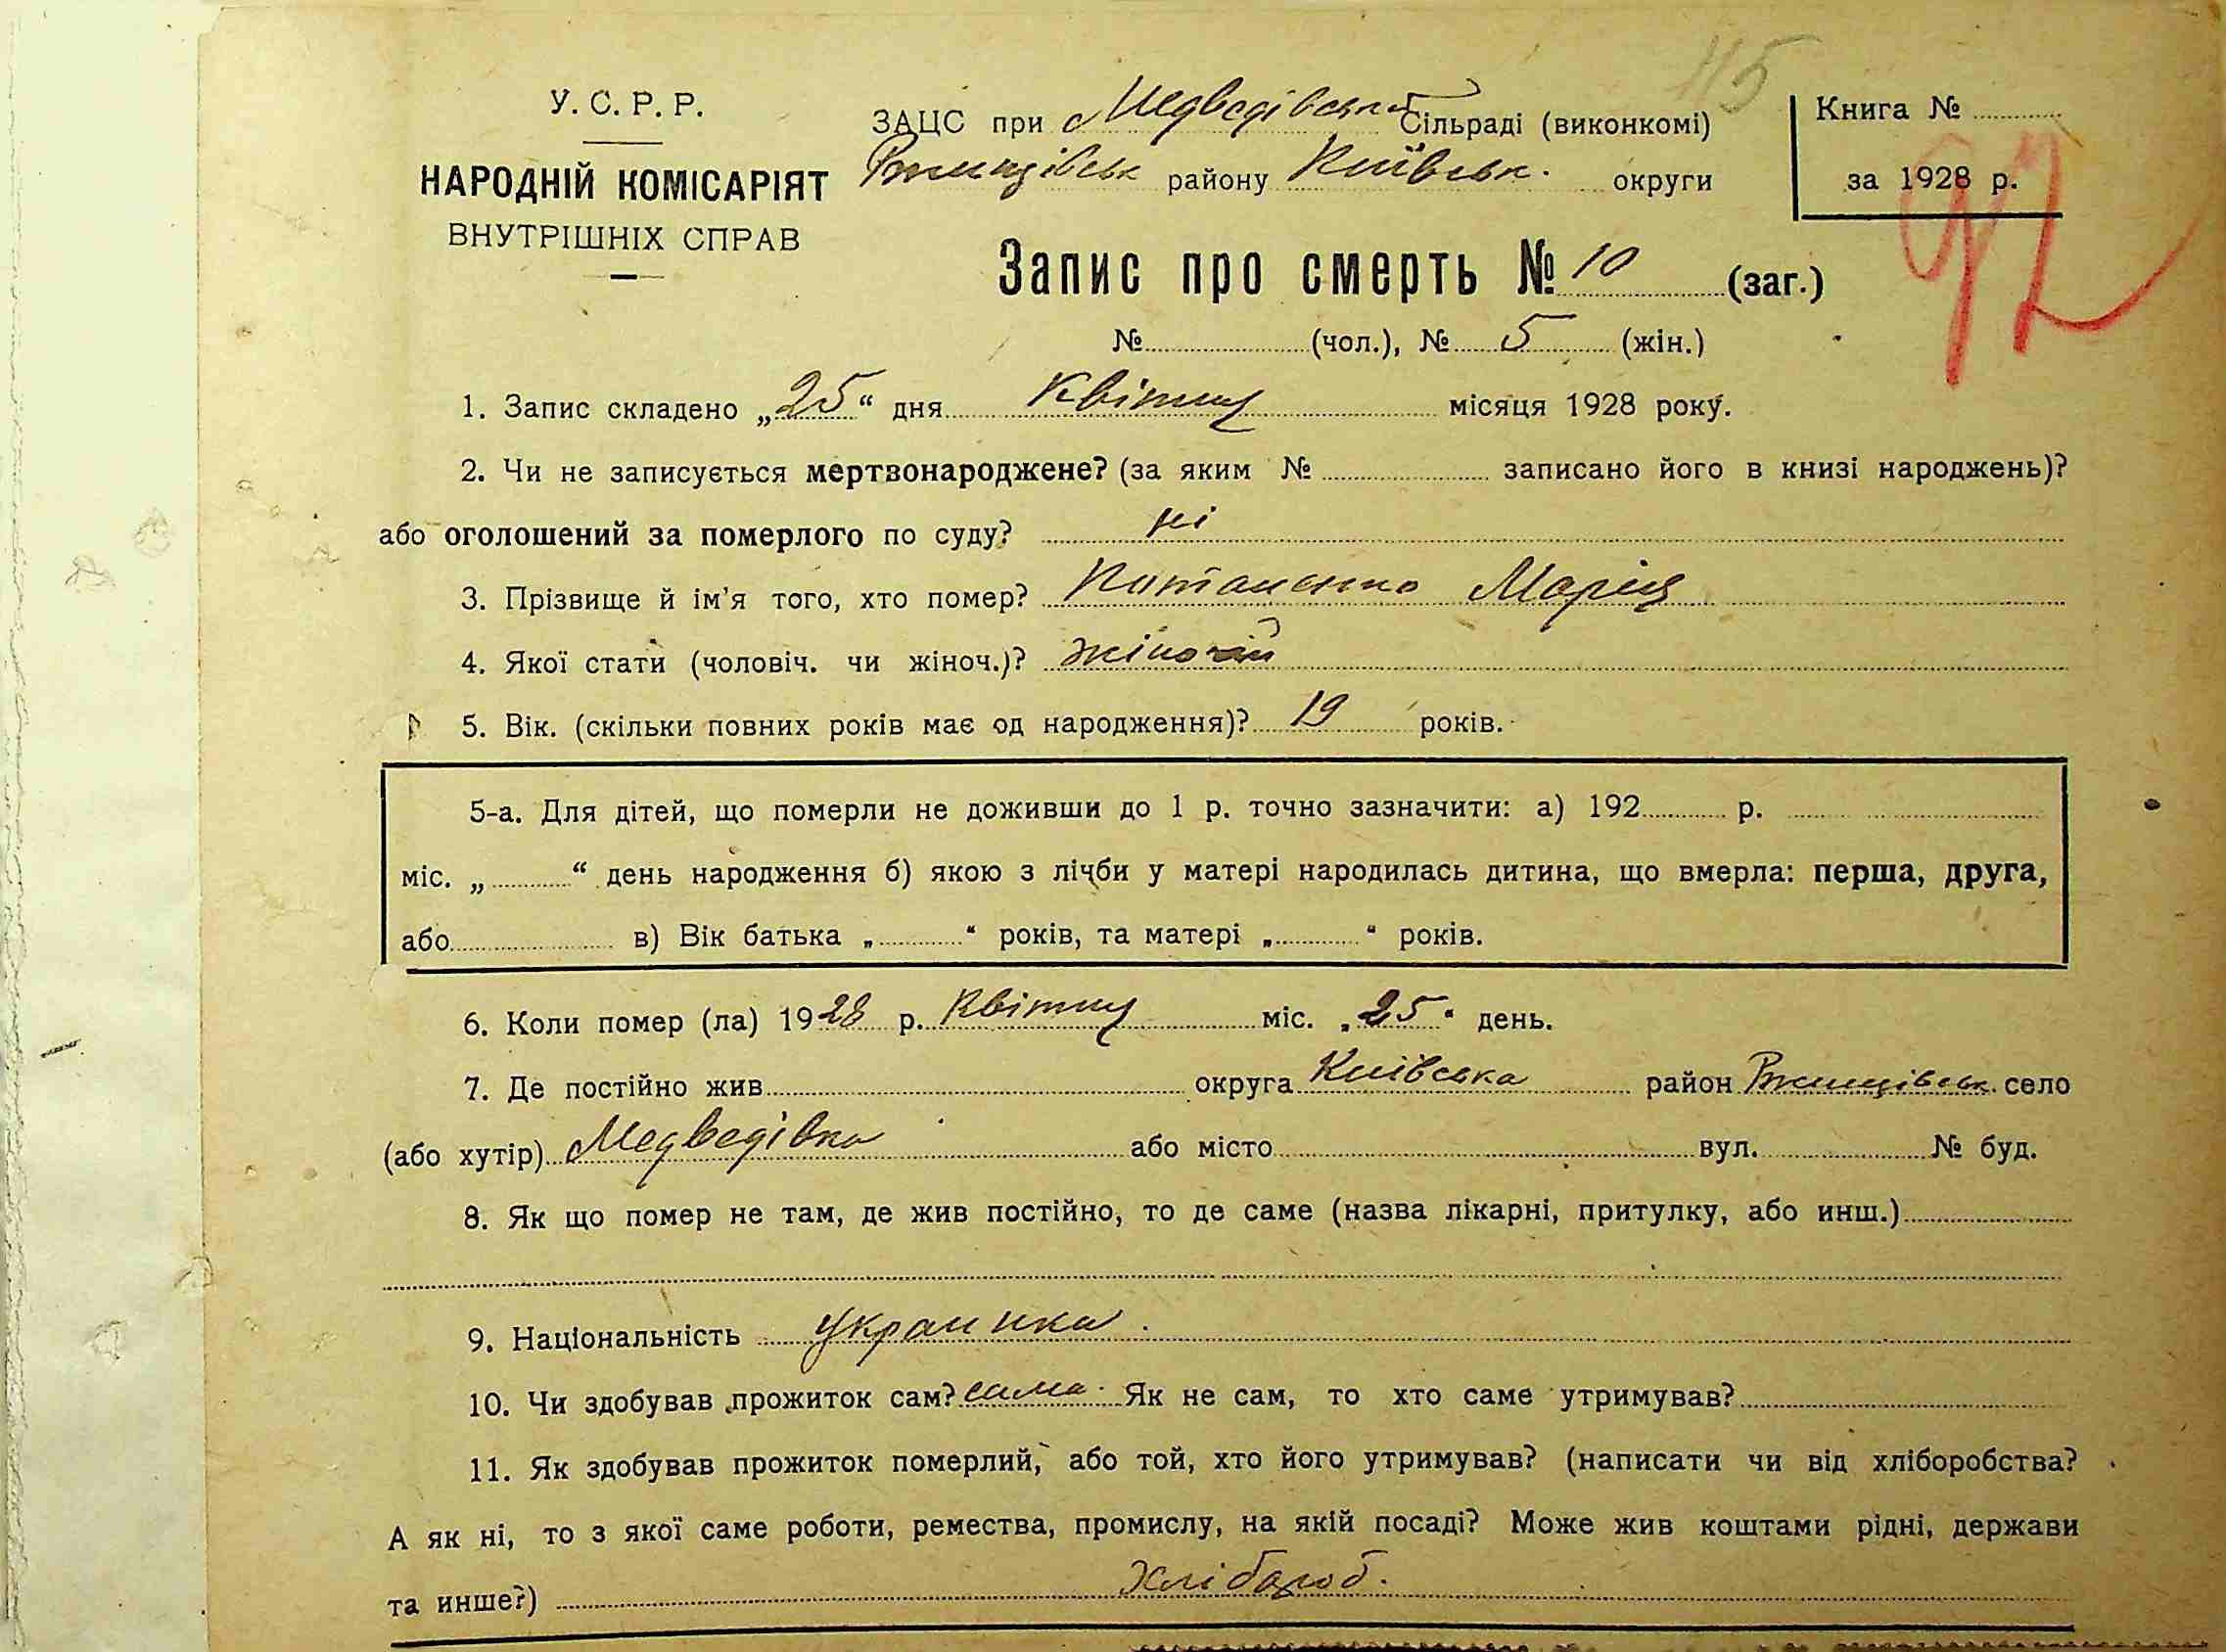 115
У. С. Р. Р.
НАРОДНІЙ КОМІСАРІЯТ
ВНУТРІШНІХ СПРАВ
ЗАЦС при Медведівській Сільраді (виконкомі)
Ржищівськ району Київськ. округи
Книга №
за 1928 р.
92
Запис про смерть № 10 (заг.)
№ (чол.), № 5 (жін.)
1. Запис складено „25“ дня Квітня місяця 1928 року.
2. Чи не записується мертвонароджене? (за яким № записано його в книзі народжень)?
або оголошений за померлого по суду? ні
3. Прізвище й ім’я того, хто помер? Марія
4. Якої стати (чоловіч. чи жіноч.)? жіночій
5. Вік. (скільки повних років має од народження)? 19 років.
5-а. Для дітей, що померли не доживши до 1 р. точно зазначити: а) 192 р.
міс. „ “ день народження б) якою з лічби у матері народилась дитина, що вмерла: перша, друга,
або в) Вік батька „ “ років, та матері „ “ років.
6. Коли помер (ла) 1928 р. Квітня міс. „25“ день.
7. Де постійно жив округа Київська район Ржищівськ. село
(або хутір) Медведівка або місто вул. № буд.
8. Як що помер не там, де жив постійно, то де саме (назва лікарні, притулку, або инш.)
9. Національність Украинка.
10. Чи здобував прожиток сам? сама. Як не сам, то хто саме утримував?
11. Як здобував прожиток померлий, або той, хто його утримував? (написати чи від хліборобства?
А як ні, то з якої саме роботи, ремества, промислу, на якій посаді? Може жив коштами рідні, держави
та инше?) Хлібороб.